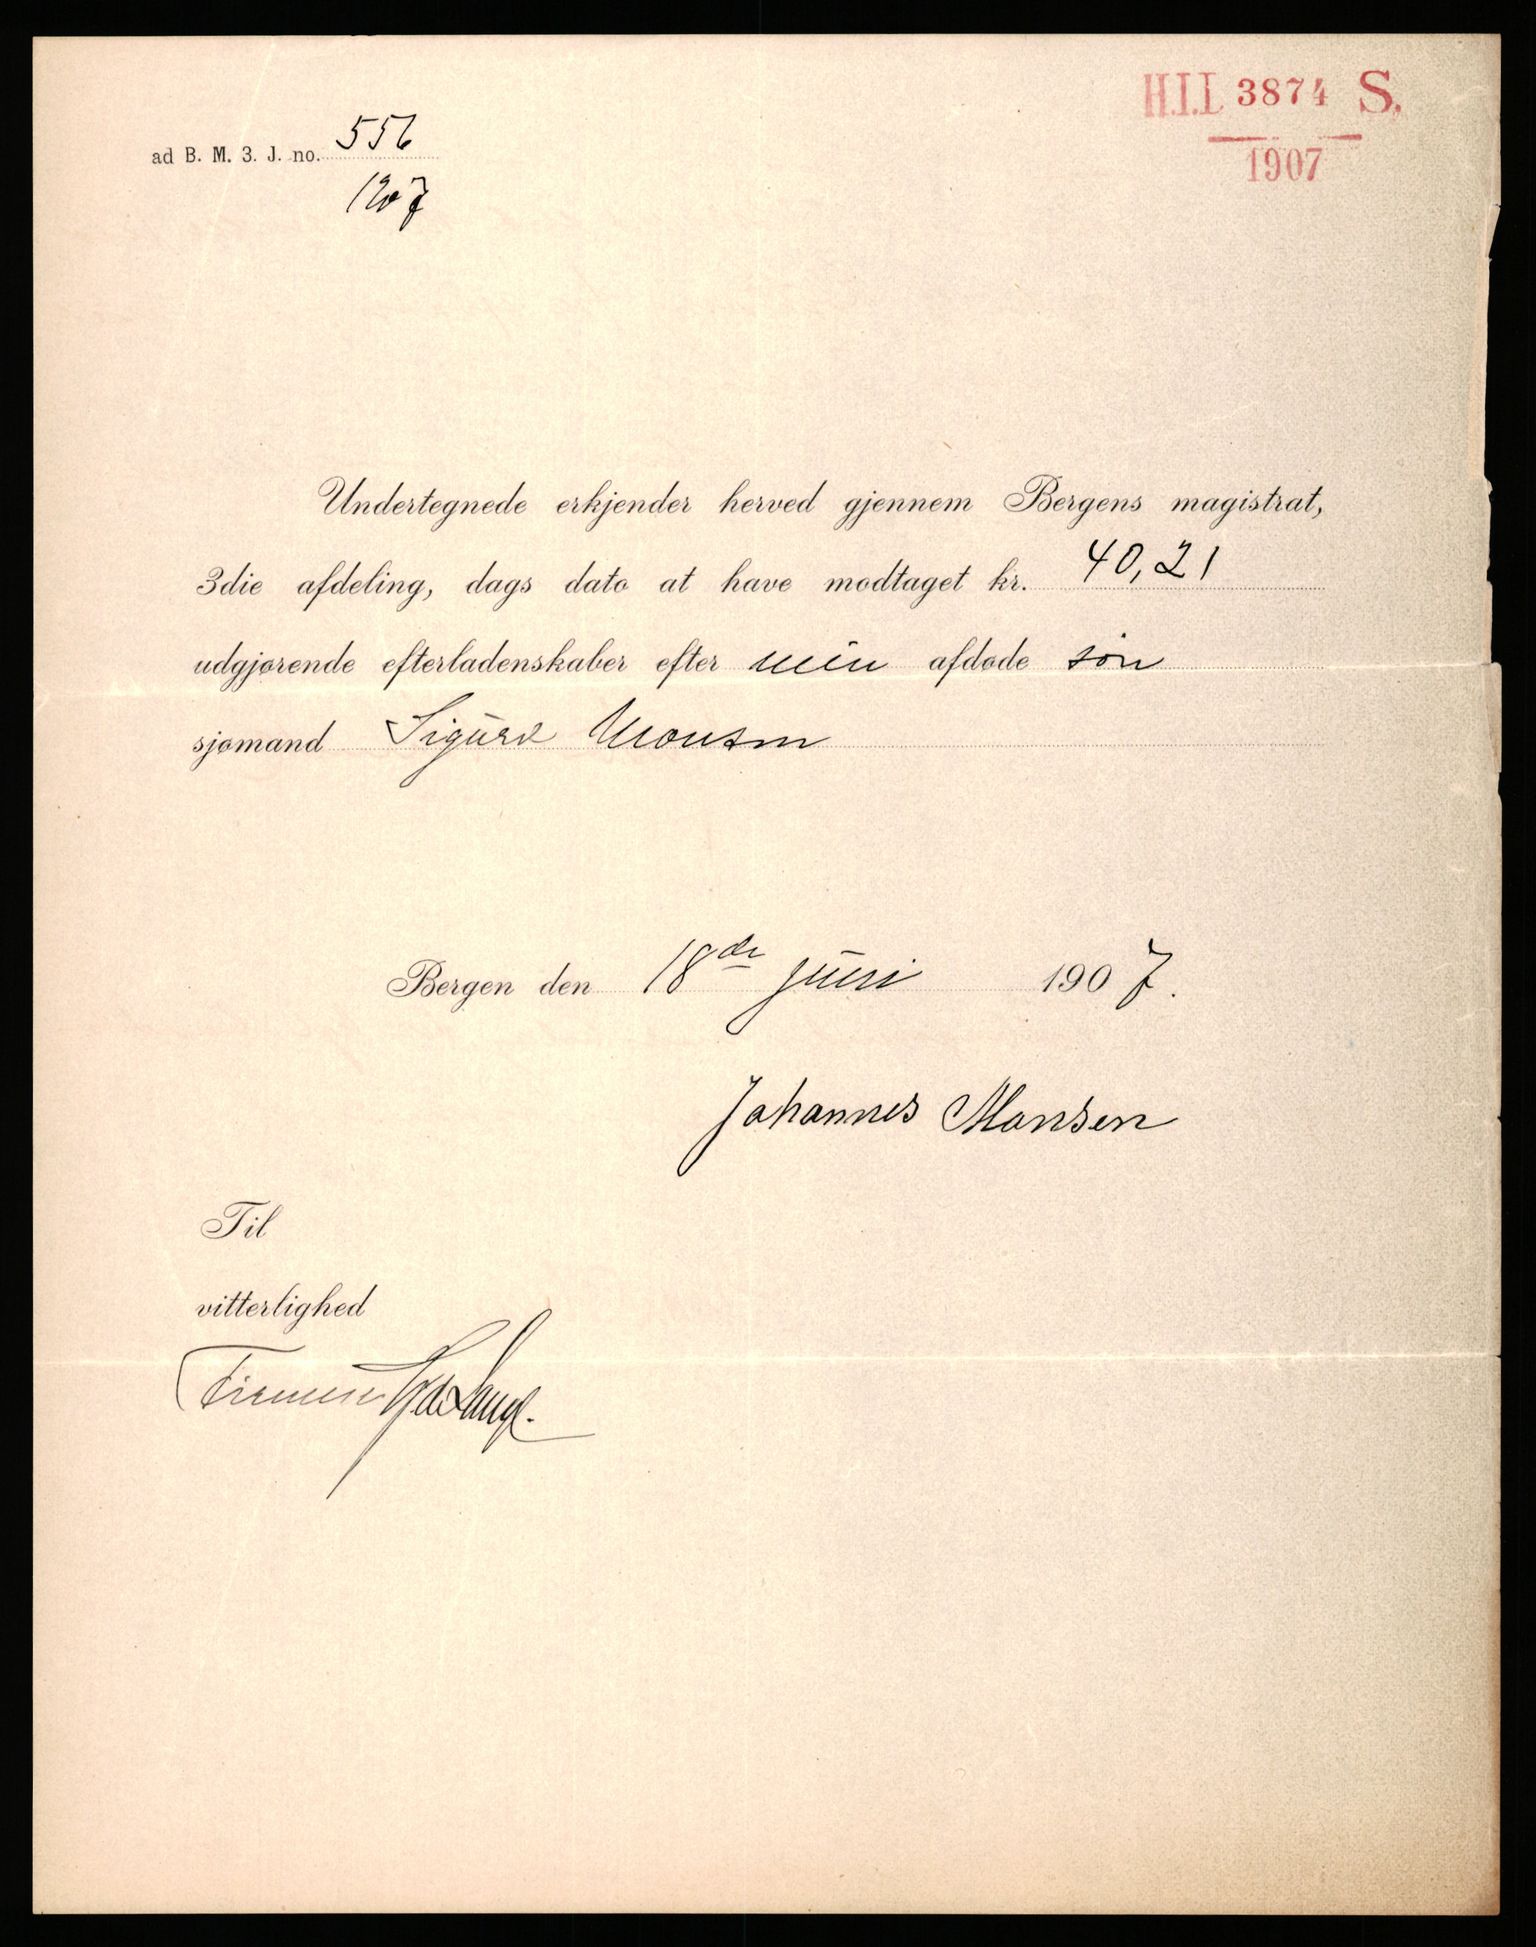 H.I.L 3874 S.
1907
ad B. M. 3. J. no. 556
1907
Undertegnede erkjender herved gjennem Bergens magistrat,
3die afdeling, dags dato at have modtaget kr. 40,21
udgjørende efterladenskaber efter min afdøde søn
sjømand Sigurd Monsen
Bergen den 18de juni 1907.
Johannes Monsen
Til
vitterlighed